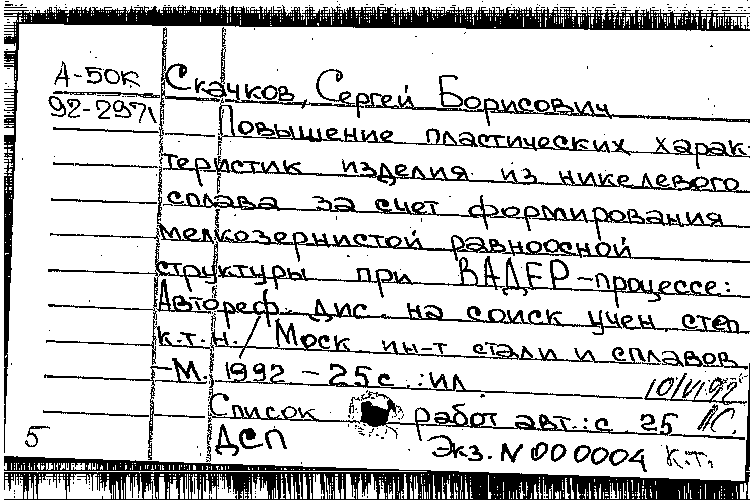 А-50к Скачков, Сергей Борисович
92-2971 Повышение пластических харак-
теристик изделия из никелевого
сплава за счет формирования
мелкозернистой равноосной
структуры при ВАДЕР-процессе:
Автореф. дис. на соиск учен. степ
к.т.н. / Моск ин-т стали и сплавов
-М. 1992 - 25с.: ил.
10/VI 92
Список работ авт.: с. 25
5 ДСП Экз. N 000004 к.т.